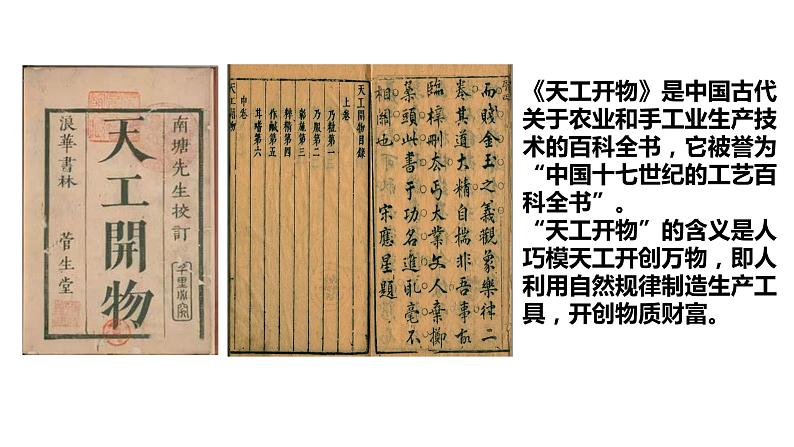 南塘先生校訂
千里必究
天工開物
浪華書林 菅生堂
而賤金玉之義觀象樂律二
卷其道太精自揣非吾事故
臨梓刪去丐大業文人棄擲
案頭此書于功名進取毫不
相關也 宋應星題
天工開物目錄
上卷
乃粒第一
乃服第二
彰施第三
粹精第四
作鹹第五
甘嗜第六
中卷
天工開物
《天工开物》是中国古代
关于农业和手工业生产技
术的百科全书，它被誉为
“中国十七世纪的工艺百
科全书”。
“天工开物”的含义是人
巧模天工开创万物，即人
利用自然规律制造生产工
具，开创物质财富。